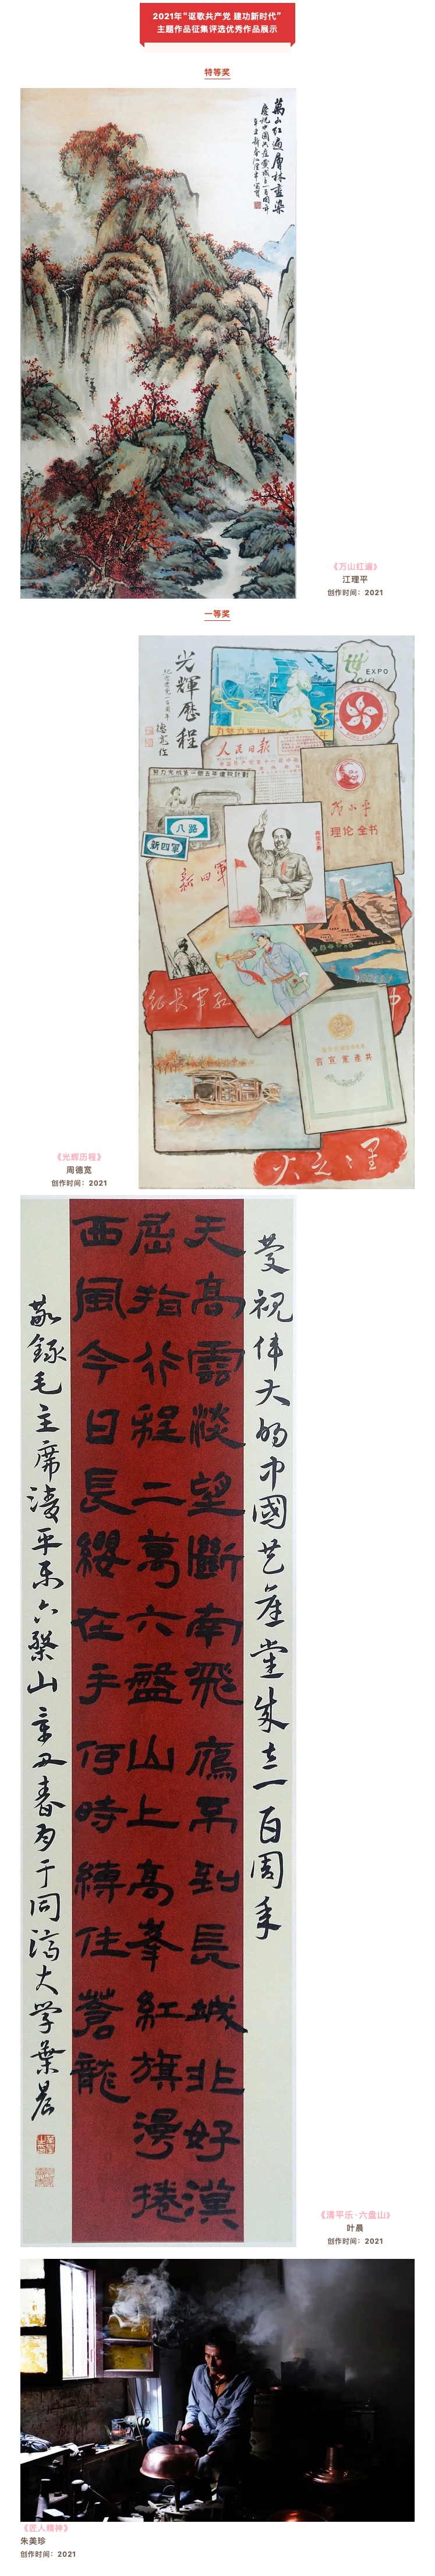 2021年“讴歌共产党 建功新时代”
主题作品征集评选优秀作品展示
特等奖
萬山红遍層林盡染
《万山红遍》
江理平
创作时间：2021
一等奖
光輝歷程
EXPO
人民日报
八路
新四軍
新四軍
理论全书
共產黨宣言
《光辉历程》
周德宽
创作时间：2021
慶祝伟大的中國共產党成立一百周年
天高雲淡望斷南飛鴈不到長城非好漢
屈指行程二萬六盤山上高峯紅旗漫捲
西風今日長纓在手何時縛住蒼龍
敬錄毛主席清平乐六盤山辛丑春月于同濟大学葉晨
《清平乐·六盘山》
叶晨
创作时间：2021
《匠人精神》
朱美珍
创作时间：2021